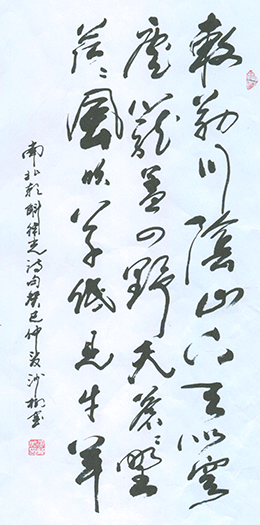 敕勒川陰山下天似穹
廬籠蓋四野天蒼〻野
茫〻風吹草低見牛羊
南北朝斛律光詩句癸巳仲夏沙柳書